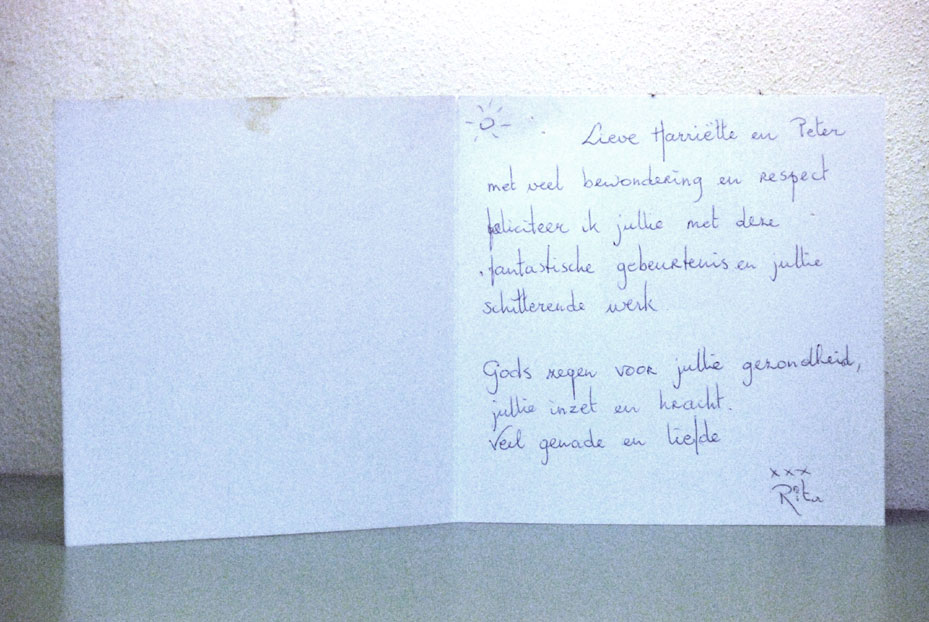 Lieve Harriëtte en Peter
met veel bewondering en respect
feliciteer ik jullie met deze
fantastische gebeurtenis en jullie
schitterende werk
Gods zegen voor jullie gezondheid,
jullie inzet en kracht.
Veel genade en liefde
xxx
Rita